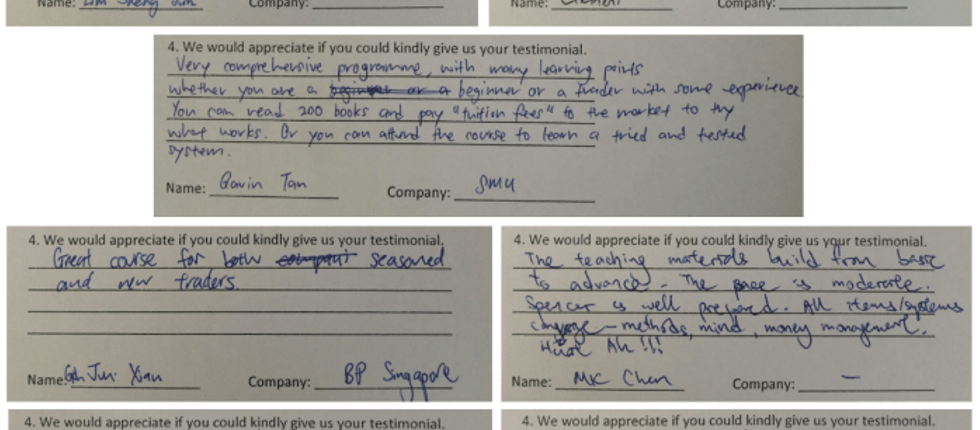 Name: Lim Sheng Company:
Name: Company:
4. We would appreciate if you could kindly give us your testimonial.
Very comprehensive programme, with many learning points
whether you are a beginner or a beginner or a trader with some experience
You can read 200 books and pay "tuition fees" to the market to try
what works. Or you can attend the course to learn a tried and tested
system.
Name: Gavin Tan Company: SMU
4. We would appreciate if you could kindly give us your testimonial.
Great course for both seasoned
and new traders.
Name: Goh Jun Xian Company: BP Singapore
4. We would appreciate if you could kindly give us your testimonial.
The teaching materials build from basic
to advance. The pace is moderate.
Spencer is well prepared. All items/systems
- methods, mind, money management.
Huat Ah!!!
Name: MK Chen Company: —
4. We would appreciate if you could kindly give us your testimonial.
4. We would appreciate if you could kindly give us your testimonial.